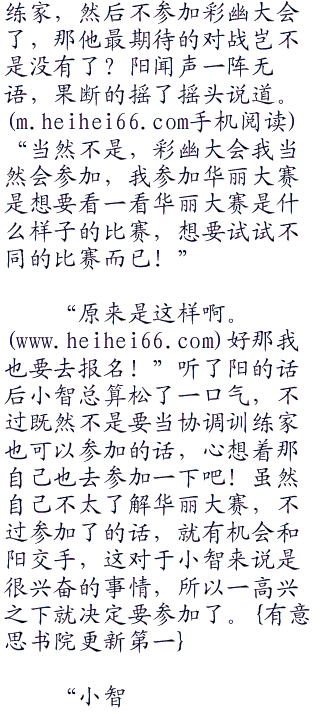 练家，然后不参加彩幽大会
了，那他最期待的对战岂不
是没有了？阳闻声一阵无
语，果断的摇了摇头说道。
(m.heihei66.com手机阅读)
“当然不是，彩幽大会我当
然会参加，我参加华丽大赛
是想要看一看华丽大赛是什
么样子的比赛，想要试试不
同的比赛而已！”
“原来是这样啊。
(www.heihei66.com)好那我
也要去报名！”听了阳的话
后小智总算松了一口气，不
过既然不是要当协调训练家
也可以参加的话，心想着那
自己也去参加一下吧！虽然
自己不太了解华丽大赛，不
过参加了的话，就有机会和
阳交手，这对于小智来说是
很兴奋的事情，所以一高兴
之下就决定要参加了。{有意
思书院更新第一}
“小智